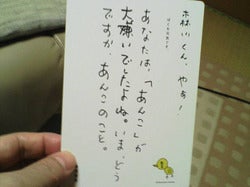 森川くん、やあ!
あなたは、「あんこ」が
大嫌いでしたよね。いま、どう
ですか、あんこのこと。